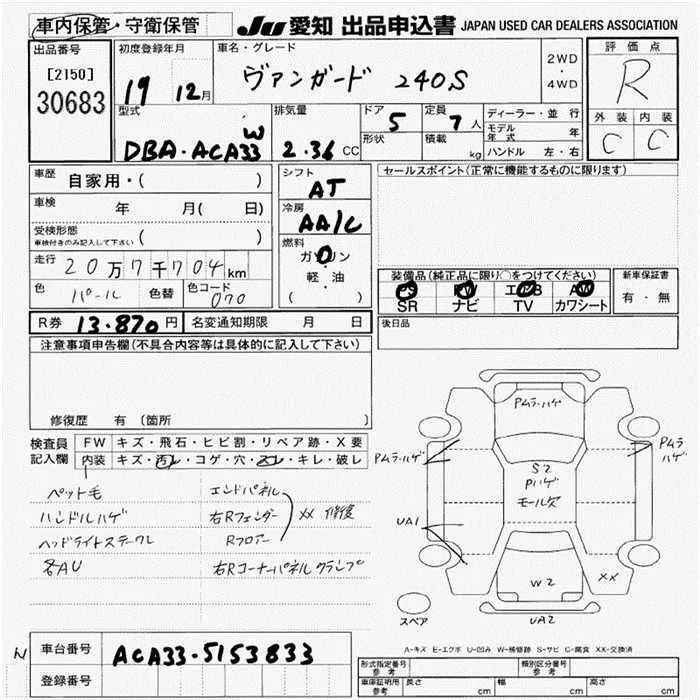 車内保管・守衛保管
JU 愛知 出品申込書 JAPAN USED CAR DEALERS ASSOCIATION
出品番号
[2150]
30683
初度登録年月
19 12月
車名・グレード
ヴァンガード 240S
2WD
・
4WD
評価点
R
外装 内装
C C
型式
DBA・ACA33W
排気量
2.36 CC
ドア
5
形状
定員
7人
積載
kg
ディーラー・並行
モデル年式 年
ハンドル 左・右
車歴
自家用・( )
車検
年 月( 日)
受検形態
車検付きのみ記入して下さい ( )
走行
20万7千704km
色
パール
色替
色コード
070
シフト
AT
冷房
AA/C
燃料
ガソリン
軽・油
( ・ )
セールスポイント(正常に機能するものに限ります)
装備品(純正品に限り○をつけてください)
PS PW エアB AW
SR ナビ TV カワシート
新車保証書
有・無
R券 13,870円
名変通知期限 月 日
後日品
注意事項申告欄(不具合内容等は具体的に記入して下さい)
修復歴 有〔箇所 〕
検査員記入欄
FW キズ・飛石・ヒビ割・リペア跡・X要
内装 キズ・汚れ・コゲ・穴・スレ・キレ・破レ
ペット毛
ハンドルハゲ
ヘッドライトステークレ
各AU
エンドパネル
右Rフェンダー
Rフロアー
XX 修復
右Rコーナーパネル クランプ
Pムラ・ハゲ
Pムラ・ハゲ
Pムラハゲ
S2
Pハゲ
モール欠
UA1
W2
XX
UA2
スペア
A-キズ E-エクボ U-凹み W-補修跡 S-サビ C-腐食 XX-交換済
車台番号
ACA33-5153833
登録番号
形式指定番号
参考
類別区分番号
参考
車庫証明用
参考
長さ cm
幅 cm
高さ cm